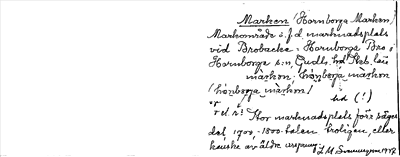 Marken (Hornborga Marken)
Markområde o.f.d. marknadsplats
vid Brobacka, Hornborga Bro i
Hornborga s:n, Gudh. hd
märken, hånbərja märken
(hånbərja märken)
hd (!)
Stor marknadsplats förr säges
det 1700-, 1800-talen troligen, eller
kanske av äldre ursprung.